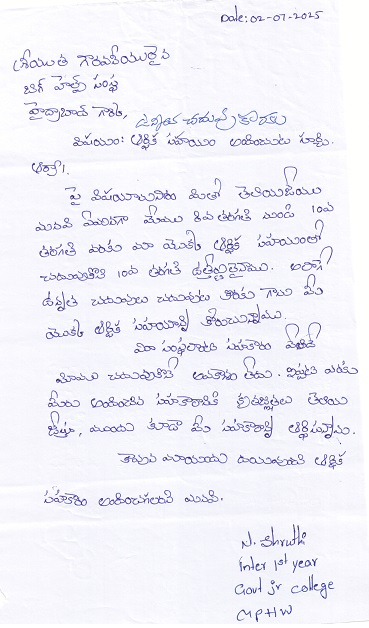 Date: 02-07-2025
శ్రీయుత గౌరవనీయులైన
బిగ్ హెల్ప్ సంస్థ
హైద్రాబాద్ గారికి, ఉన్నత చదువు కొరకు
విషయం: ఆర్థిక సహాయం అందించుట గూర్చి.
ఆర్యా!
పై విషయానుసారం మీతో తెలియజేయు
మనవి ఏమనగా మేము 8వ తరగతి నుండి 10వ
తరగతి వరకు మీ యొక్క ఆర్థిక సహాయంతో
చదువుకొని 10వ తరగతి ఉత్తీర్ణులైనాము. అలాగే
ఉన్నత చదువులు చదువుట కొరకు గాను మీ
యొక్క ఆర్థిక సహాయాన్ని కోరుచున్నాను.
మీ సంస్థ సహకారం లేనిదే
మేము చదువుకొనే అవకాశం లేదు. ఇప్పటి వరకు
మీరు అందించిన సహకారానికి కృతజ్ఞతలు తెలియ
జేస్తూ, ముందు కూడా మీ సహకారాన్ని ఆశిస్తున్నాను.
కావున మాయందు దయవుంచి ఆర్థిక
సహకారం అందించగలరని మనవి.
N. Shruthi
Inter 1st year
Govt jr college
MPHW